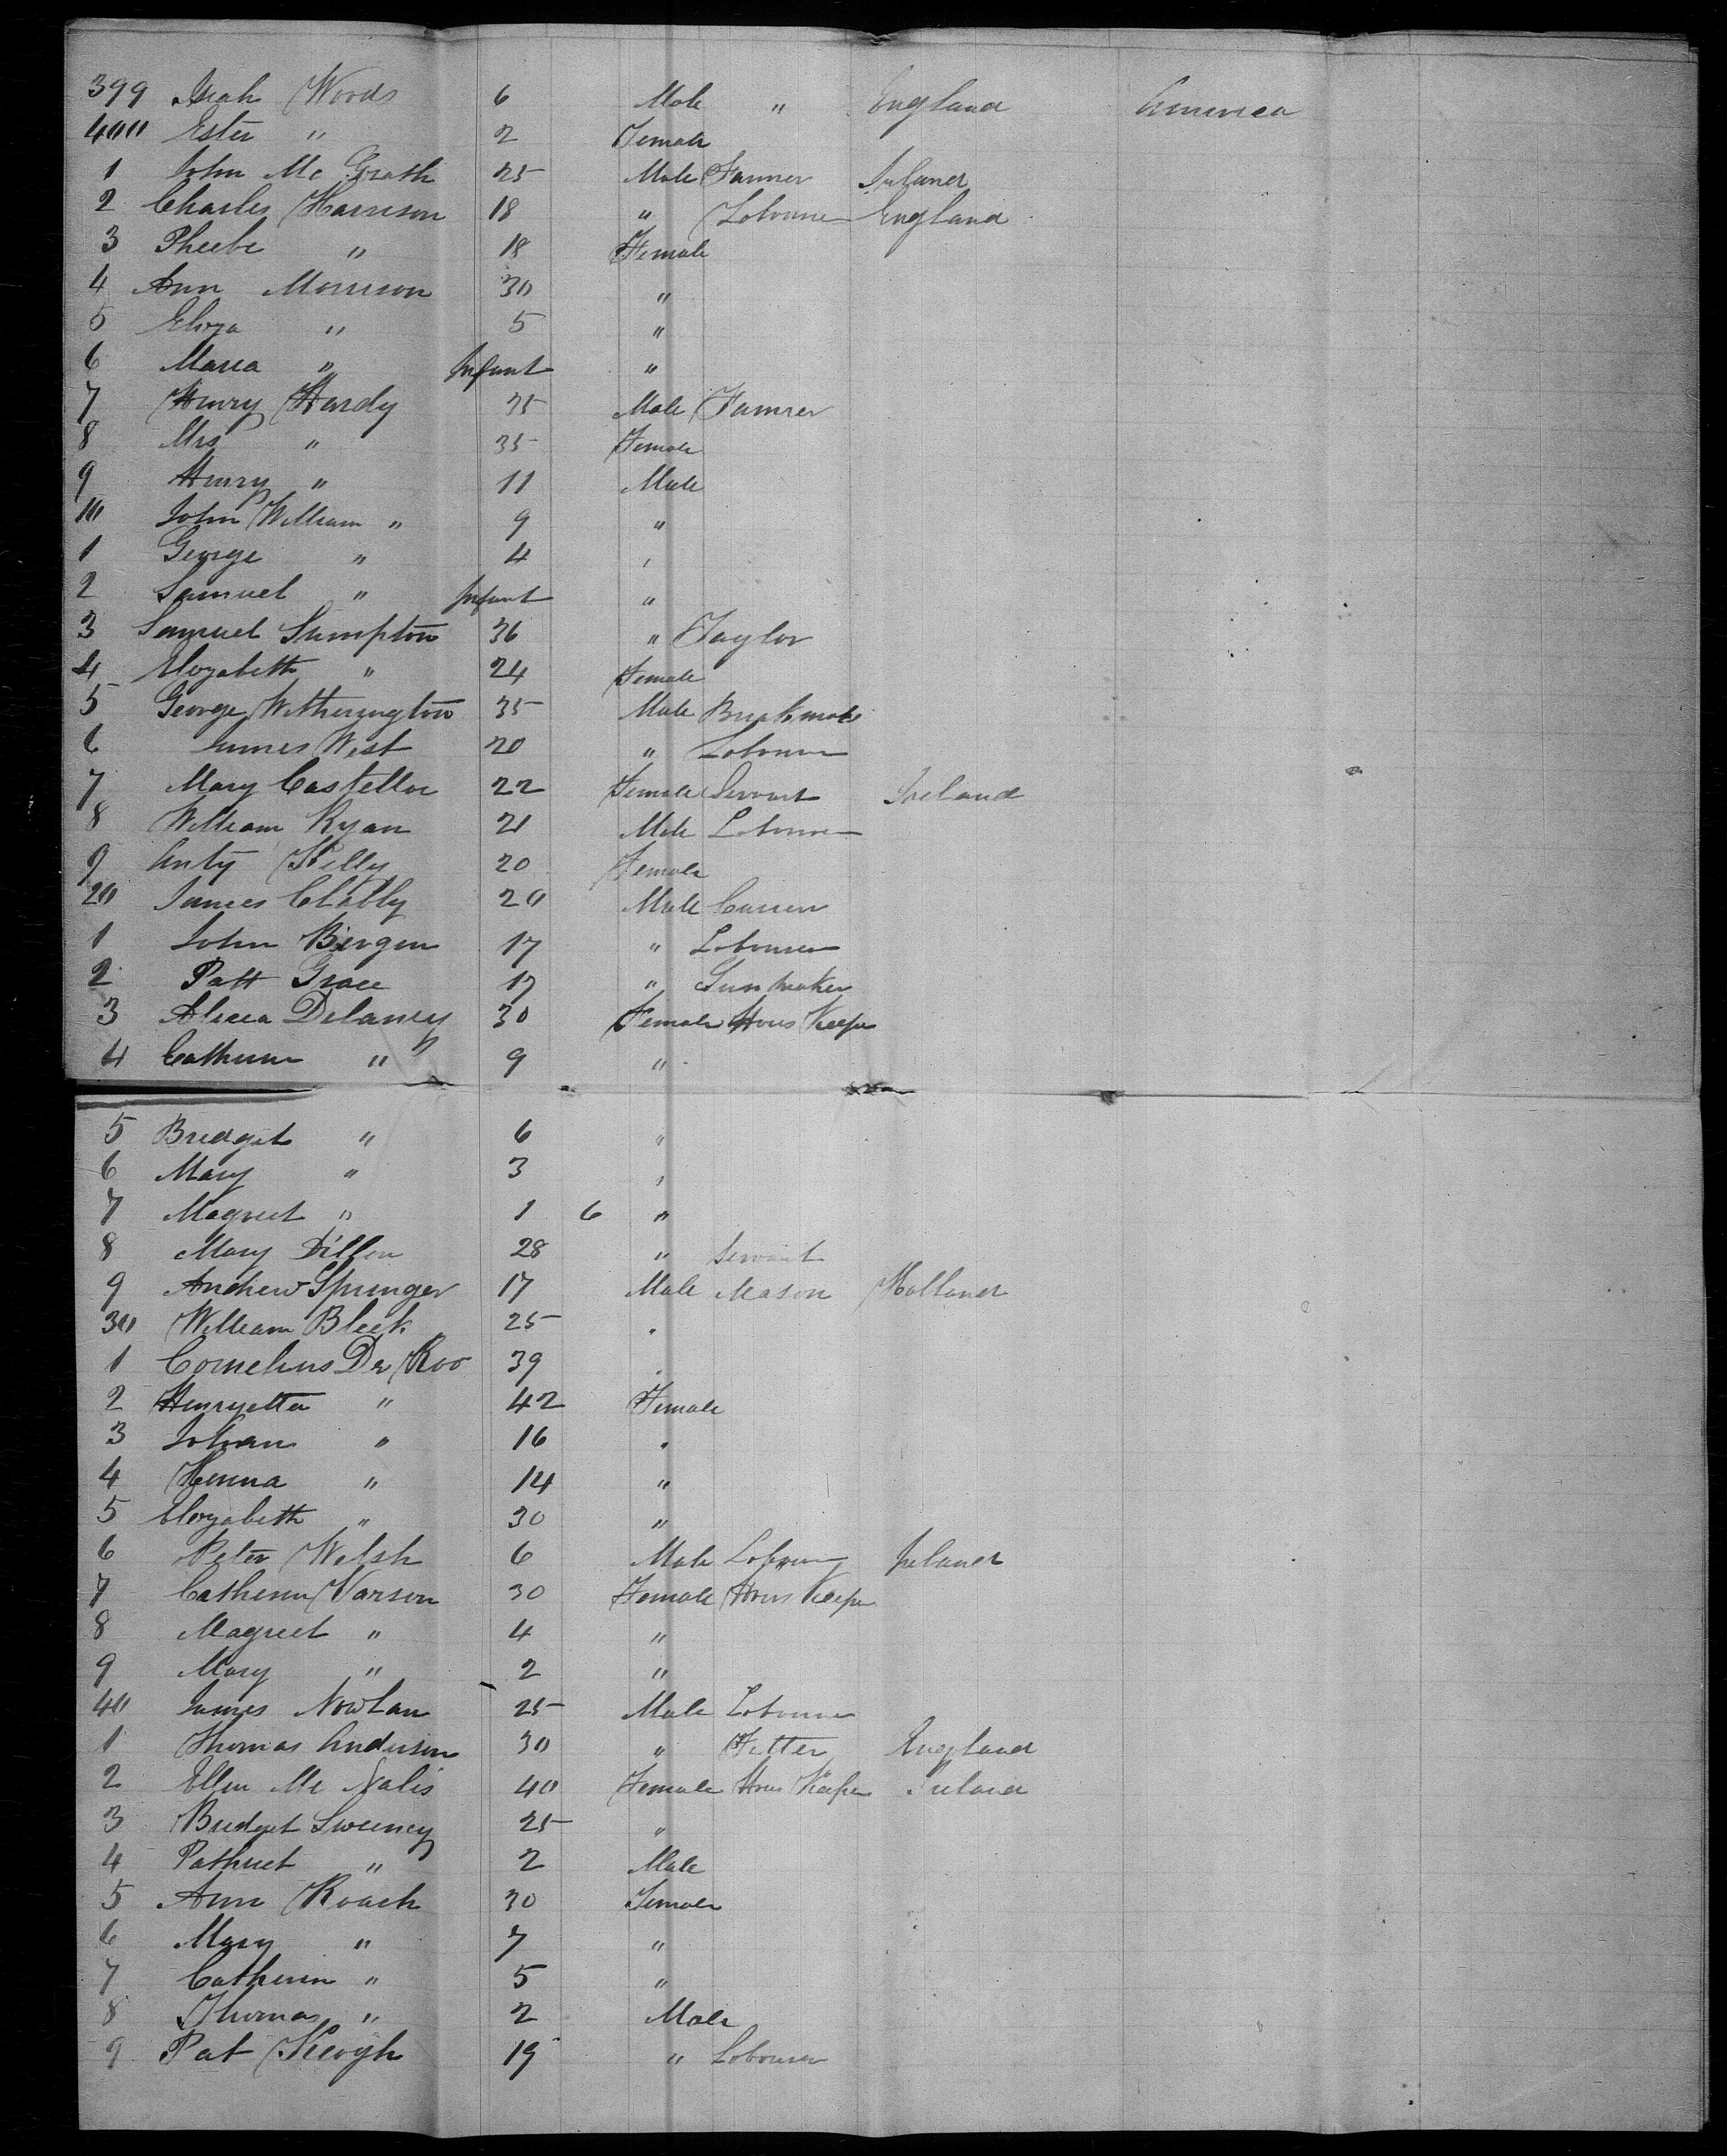 399 Isiah Woods 6 Male " England America
400 Ester " 2 Female
1 John Mc Grath 25 Male Farmer Ireland
2 Charles Harrison 18 " Labourer England
3 Pheebe " 18 Female
4 Ann Morrison 30 "
5 Eliza " 5 "
6 Maria " Infant "
7 Henry Hardy 35 Male Farmer
8 Mrs " 35 Female
9 Henry " 11 Male
10 John William " 9 "
1 George " 4 "
2 Samuel " Infant "
3 Samuel Sumpton 36 " Taylor
4 Elizabeth " 24 Female
5 George Witherington 35 Male Brickmake
6 James West 20 " Labourer
7 Mary Castelloe 22 Female Servant Ireland
8 William Ryan 21 Male Labourer
9 Anty Kelly 20 Female
20 James 20 Male
1 John Bergen 17 " Labourer
2 Patt Grace 17 " Gunmaker
3 Alicia Delaney 30 Female Hous Keeper
4 Catherine " 9 "
5 Bridget " 6 "
6 Mary " 3 "
7 Magreet " 1 6 "
8 Mary Dillon 28 " Servant
9 Andrew Springer 17 Male Mason Holland
30 William Bleek 25 "
1 Cornelius De Roo 39 "
2 Henryetta " 42 Female
3 Johan " 16 "
4 Henna " 14 "
5 Elizabeth " 30 "
6 Peter Welsh 6 Male Labourer Ireland
7 Catherin Varson 30 Female Hous Keeper
8 Magreet " 4 "
9 Mary " 2 "
40 James Nowlan 25 Male Labourer
1 Thomas Anderson 30 " Fitter England
2 Ellen Mc Nalis 40 Female Hous Keeper Ireland
3 Bridget Sweeney 25 "
4 Pathrick " 2 Male
5 Ann Roach 30 Female
6 Mary " 7 "
7 Catherin " 5 "
8 Thomas " 2 Male
9 Pat Keogh 19 " Labourer